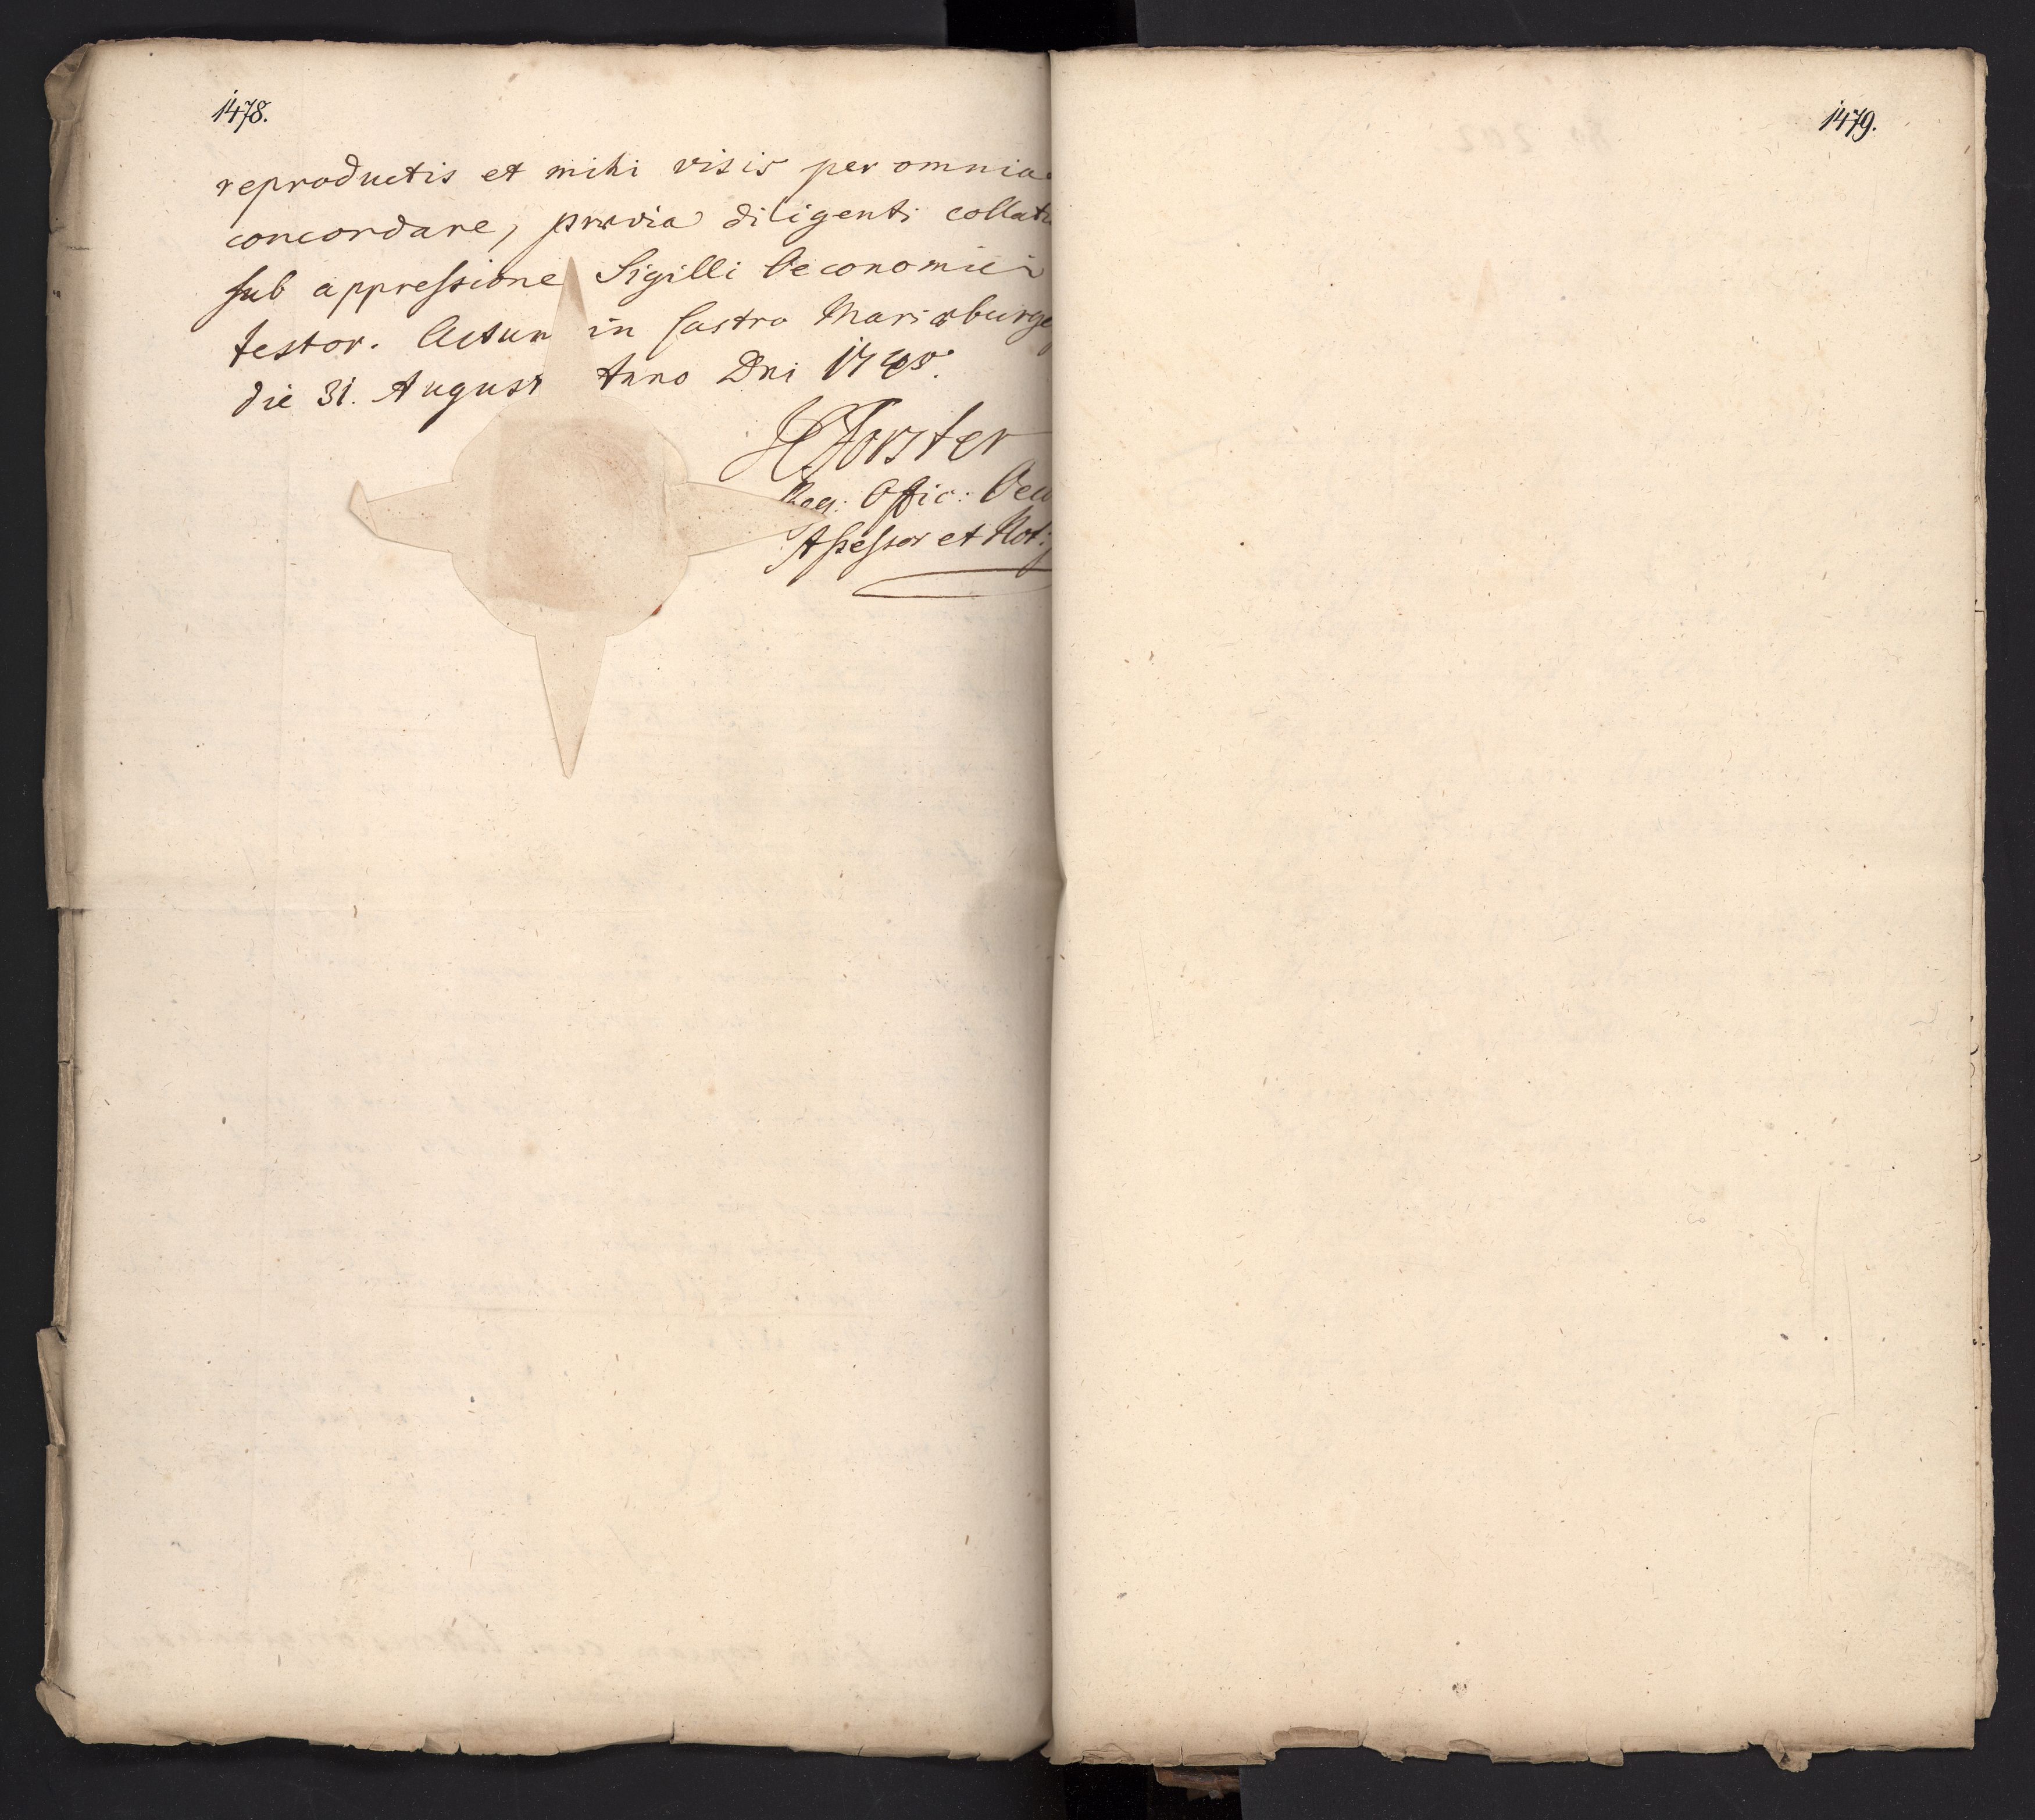 1478.
reproductis et mihi visis per omnia
concordare, prævia diligenti collati
sub appressione Sigilli Oeconomici
testor. Actum in Castro Mariæburge
die 31. August Anno Dni
Forster
Reg: Offic: Oeco
Assessor et Not:
1479.